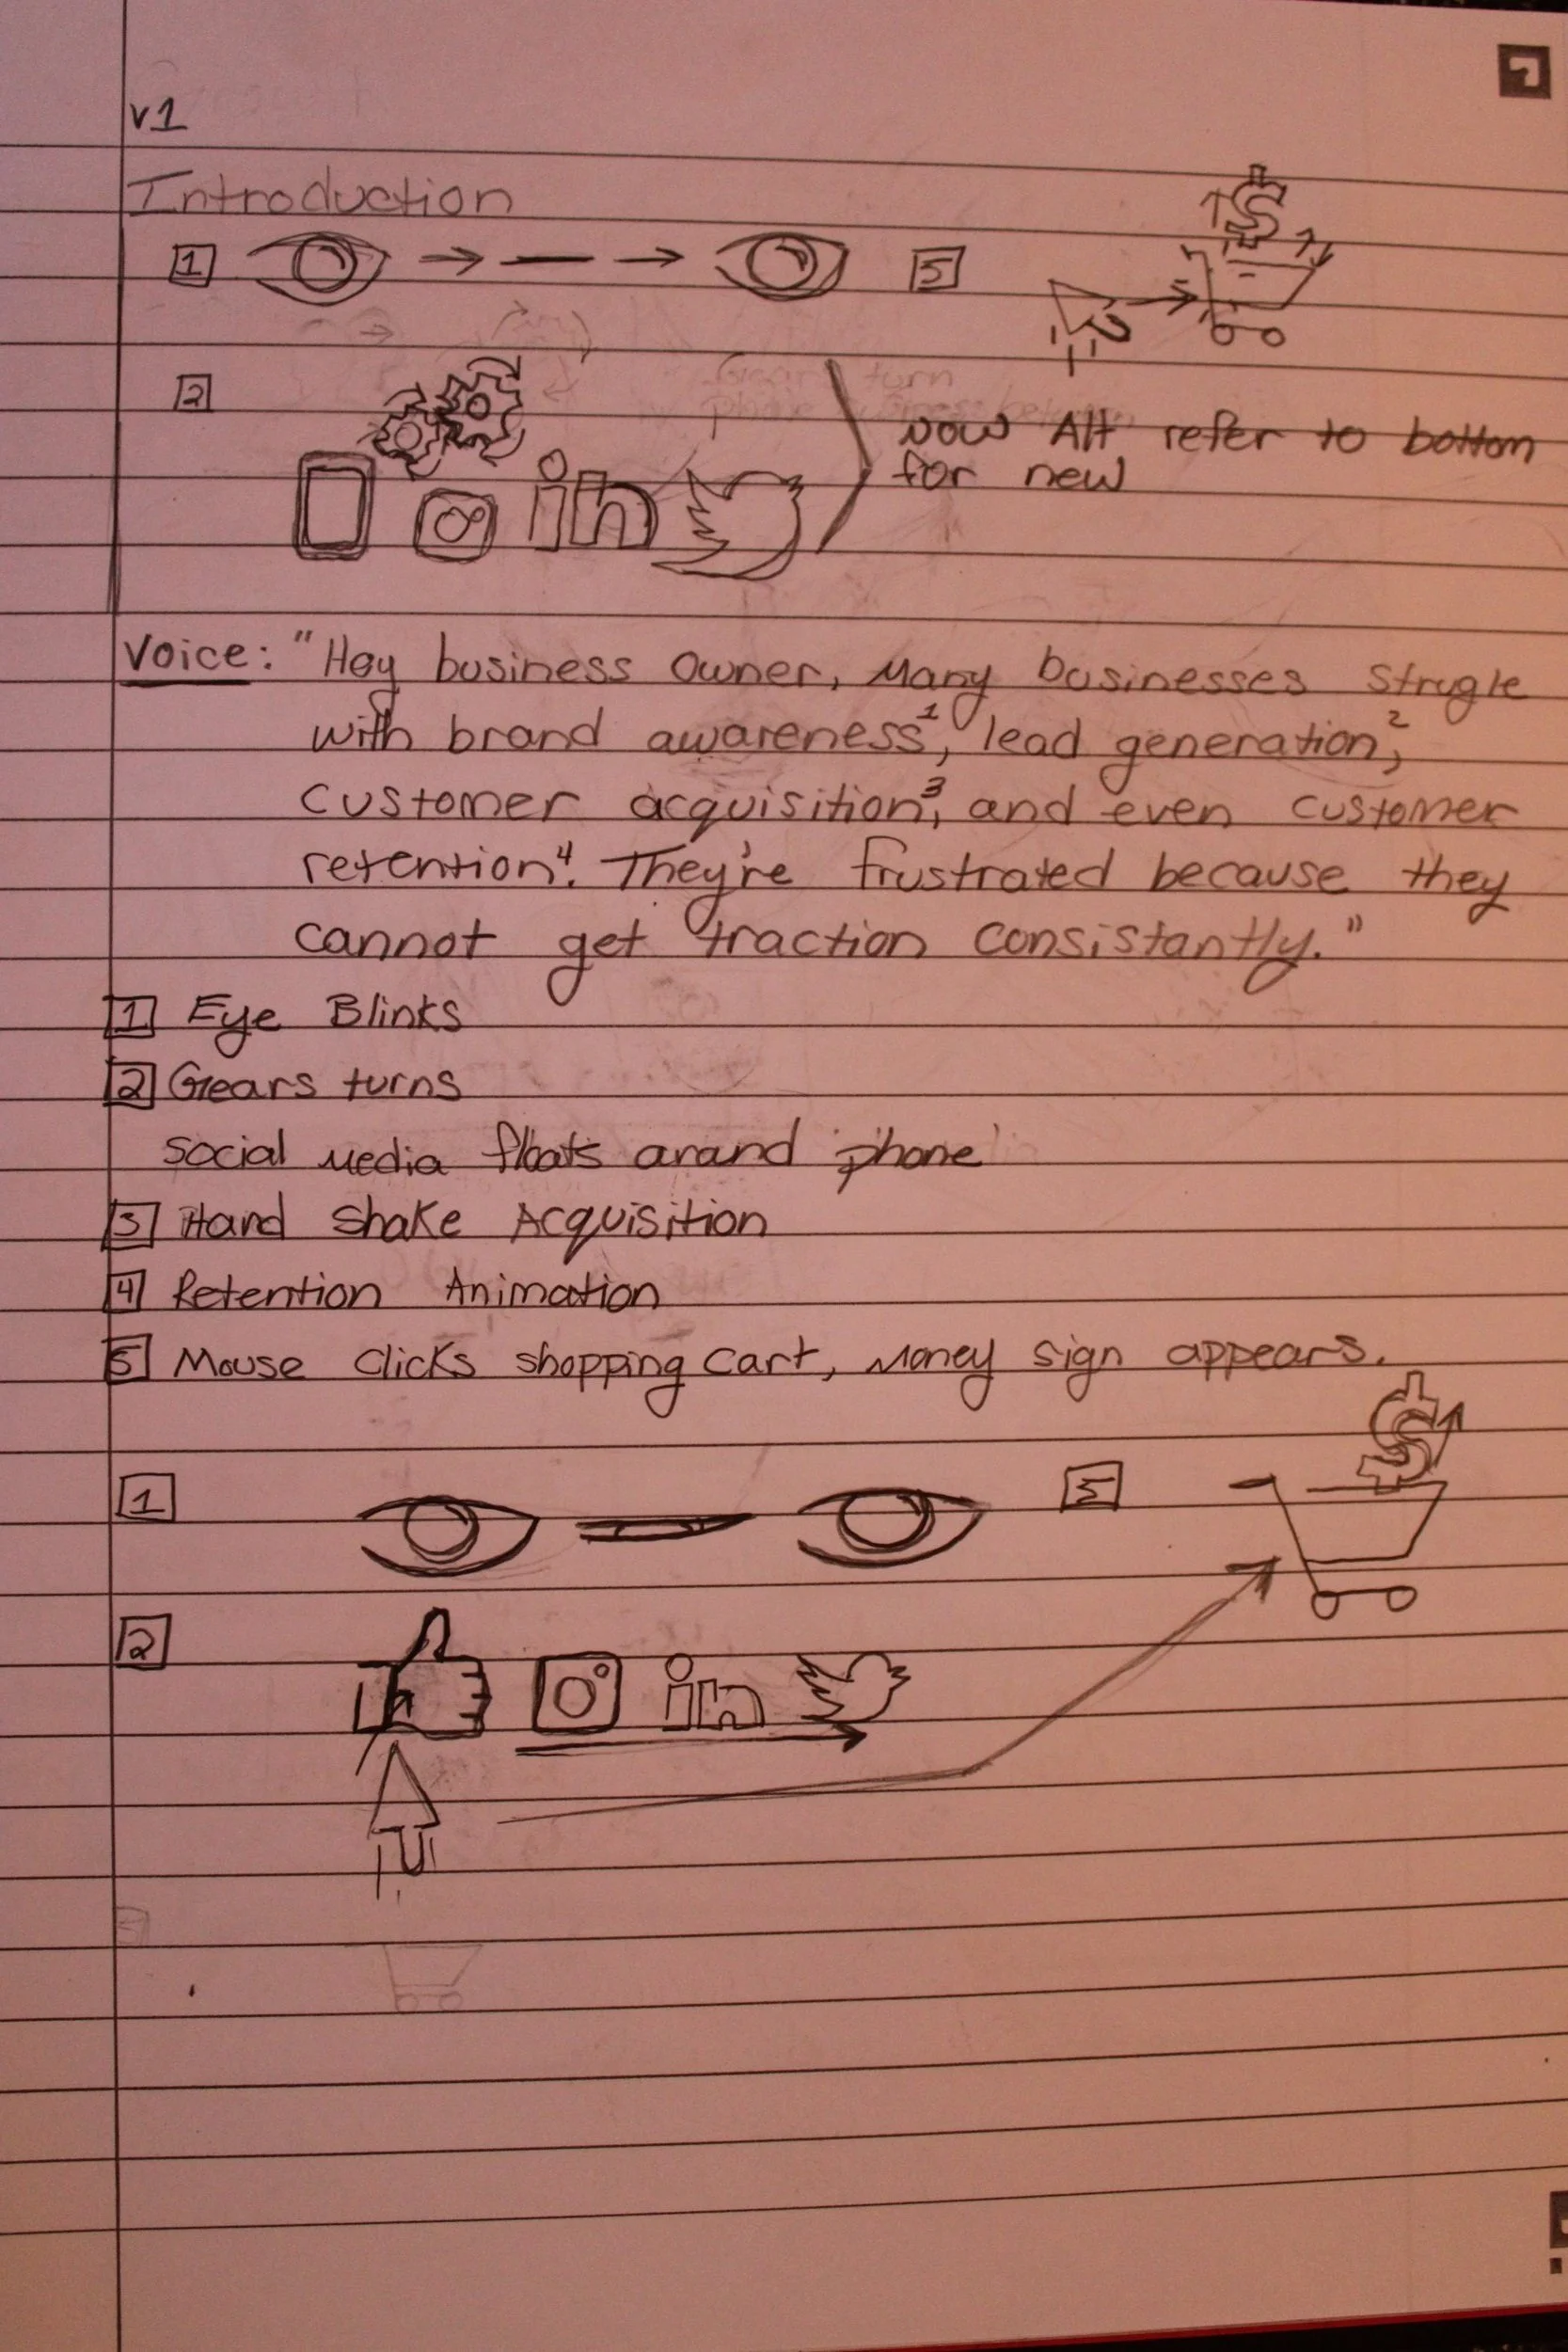 v1
Introduction
1
5
2
Gears turn
phone
now Alt refer to bottom
for new
in
Voice: "Hey business owner, Many businesses strugle
with brand awareness¹, lead generation²,
customer acquisition³, and even customer
retention⁴. They're frustrated because they
cannot get traction consistantly."
1 Eye Blinks
2 Gears turns
social media floats around phone
3 Hand shake Acquisition
4 Retention Animation
5 Mouse clicks shopping cart, Money sign appears.
$
1
5
2
in